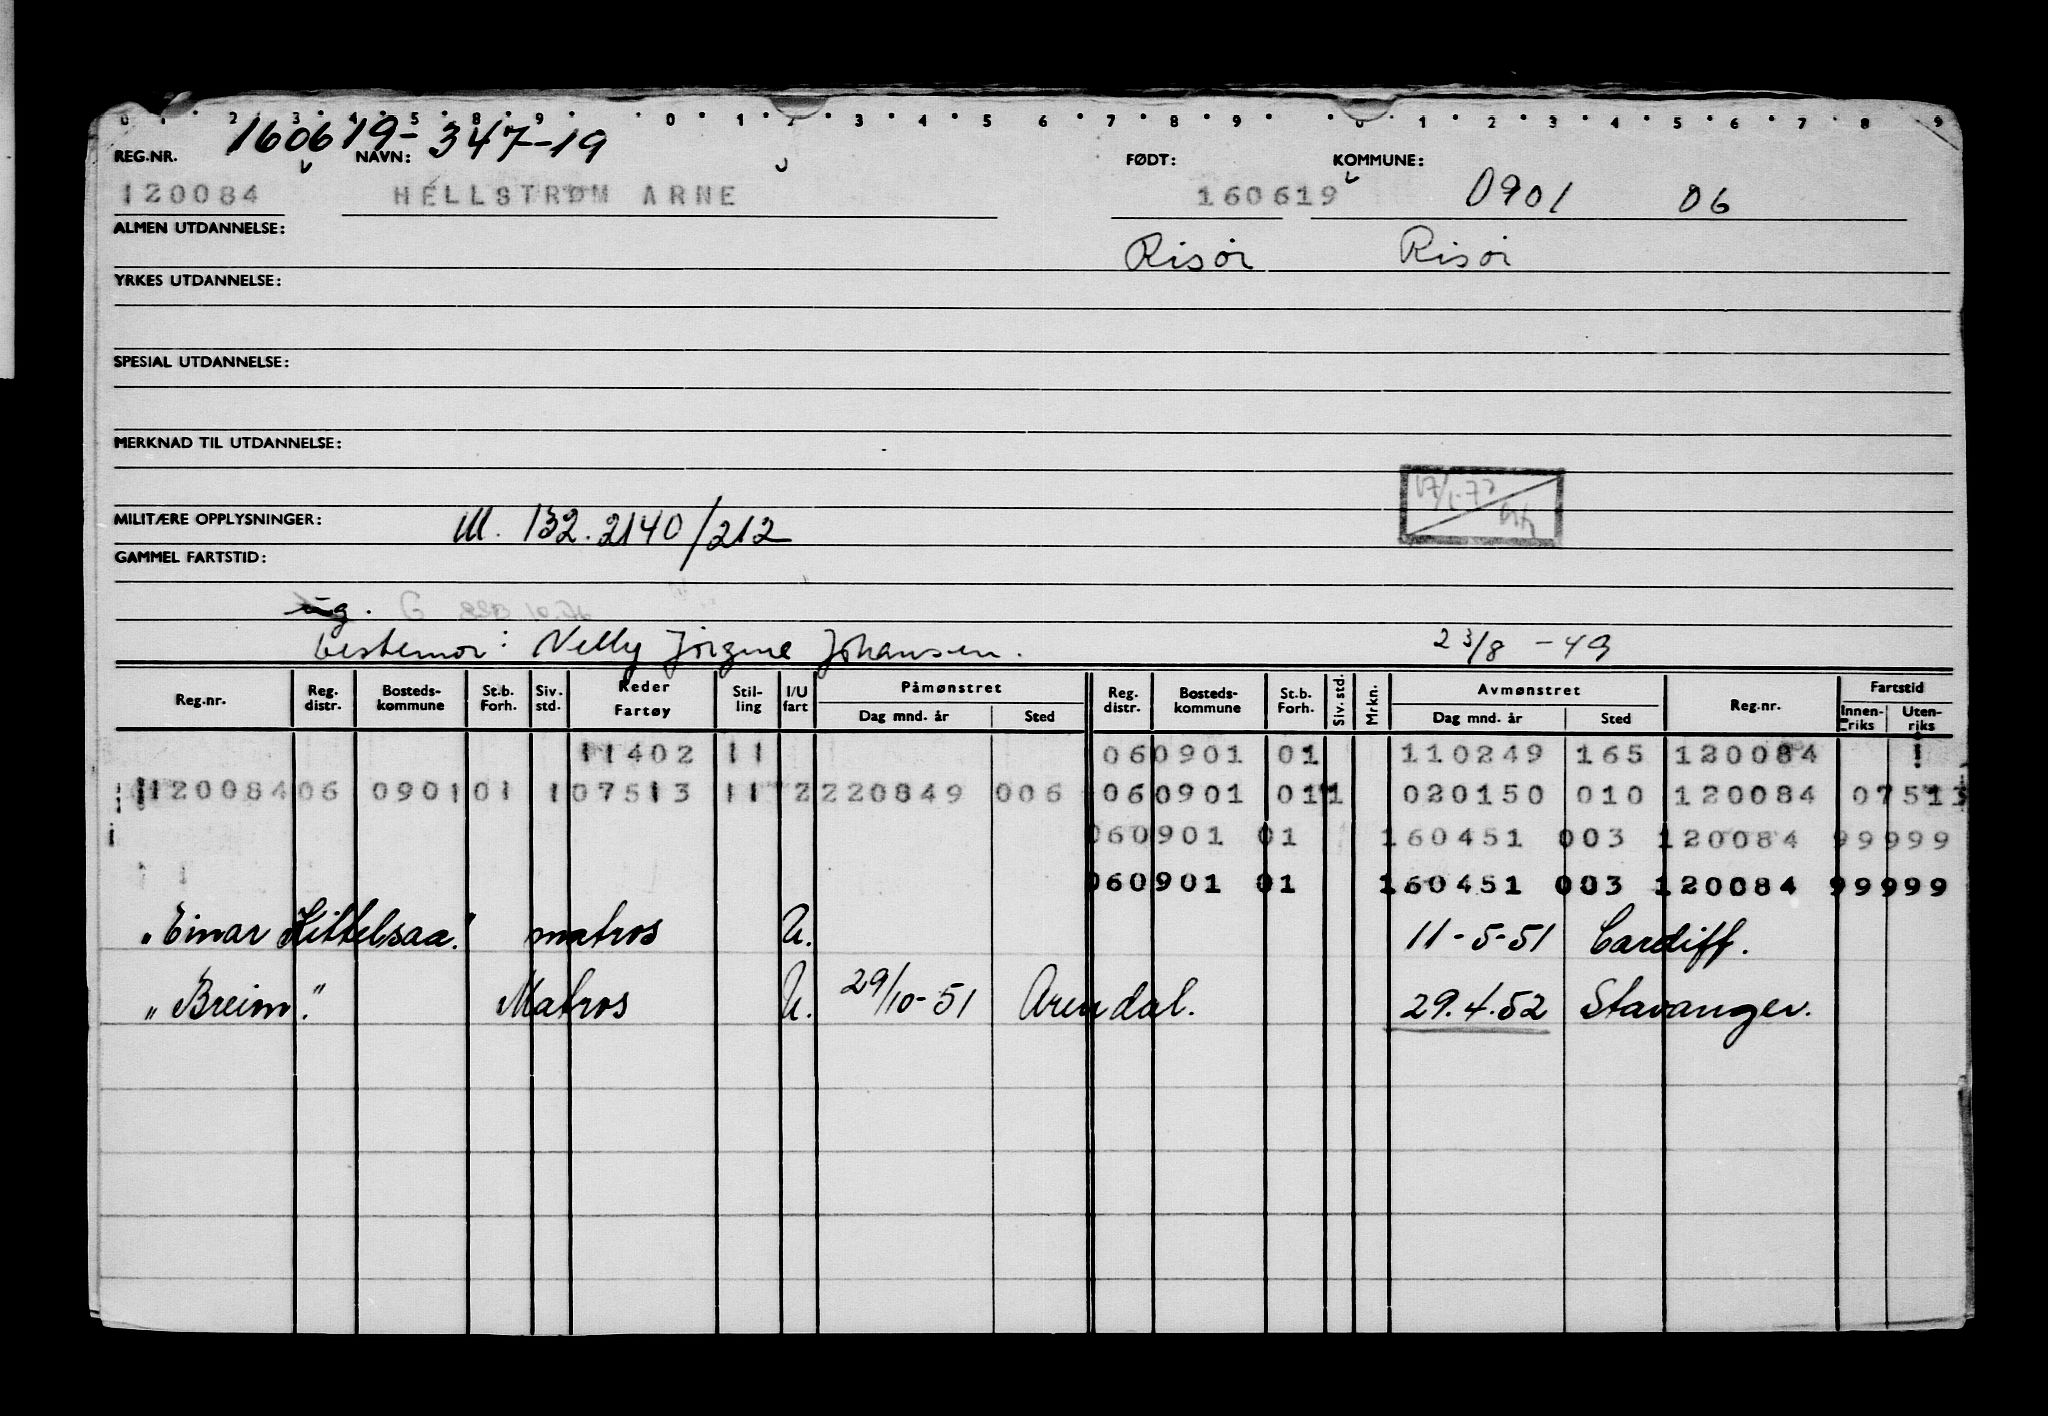 0 1 2 3 4 5 8 9 0 1 2 3 4 5 6 7 8 9 0 1 2 3 4 5 6 7 8 9
160619-347-19
REG.NR. NAVN: FØDT: KOMMUNE:
120084 HELLSTRØM ARNE 160619 0901 06
ALMEN UTDANNELSE: Risør Risør
YRKES UTDANNELSE:
SPESIAL UTDANNELSE:
MERKNAD TIL UTDANNELSE:
MILITÆRE OPPLYSNINGER: M. 132.2140/212
GAMMEL FARTSTID:
ug. G
bestemor: Nelly Jørgine Johansen. 23/8 -49
Reg.nr. Reg. distr. Bosteds-kommune St.b. Forh. Siv. std. Reder Fartøy Stil-ling I/U fart Påmønstret Dag mnd. år Sted Reg. distr. Bosteds-kommune St.b. Forh. Siv. std. Mrkn. Avmønstret Dag mnd. år Sted Reg.nr. Fartstid Innen-riks Uten-riks
11402 11 060901 01 110249 165 120084 1
120084 06 0901 01 1 07513 11 2 220849 006 060901 01 1 020150 010 120084 07513
060901 01 160451 003 120084 99999
060901 01 160451 003 120084 99999
"Einar Kittelsaa." matros U. 11-5-51 Cardiff.
"Breim." Matros U. 29/10-51 Arendal. 29.4.52 Stavanger.